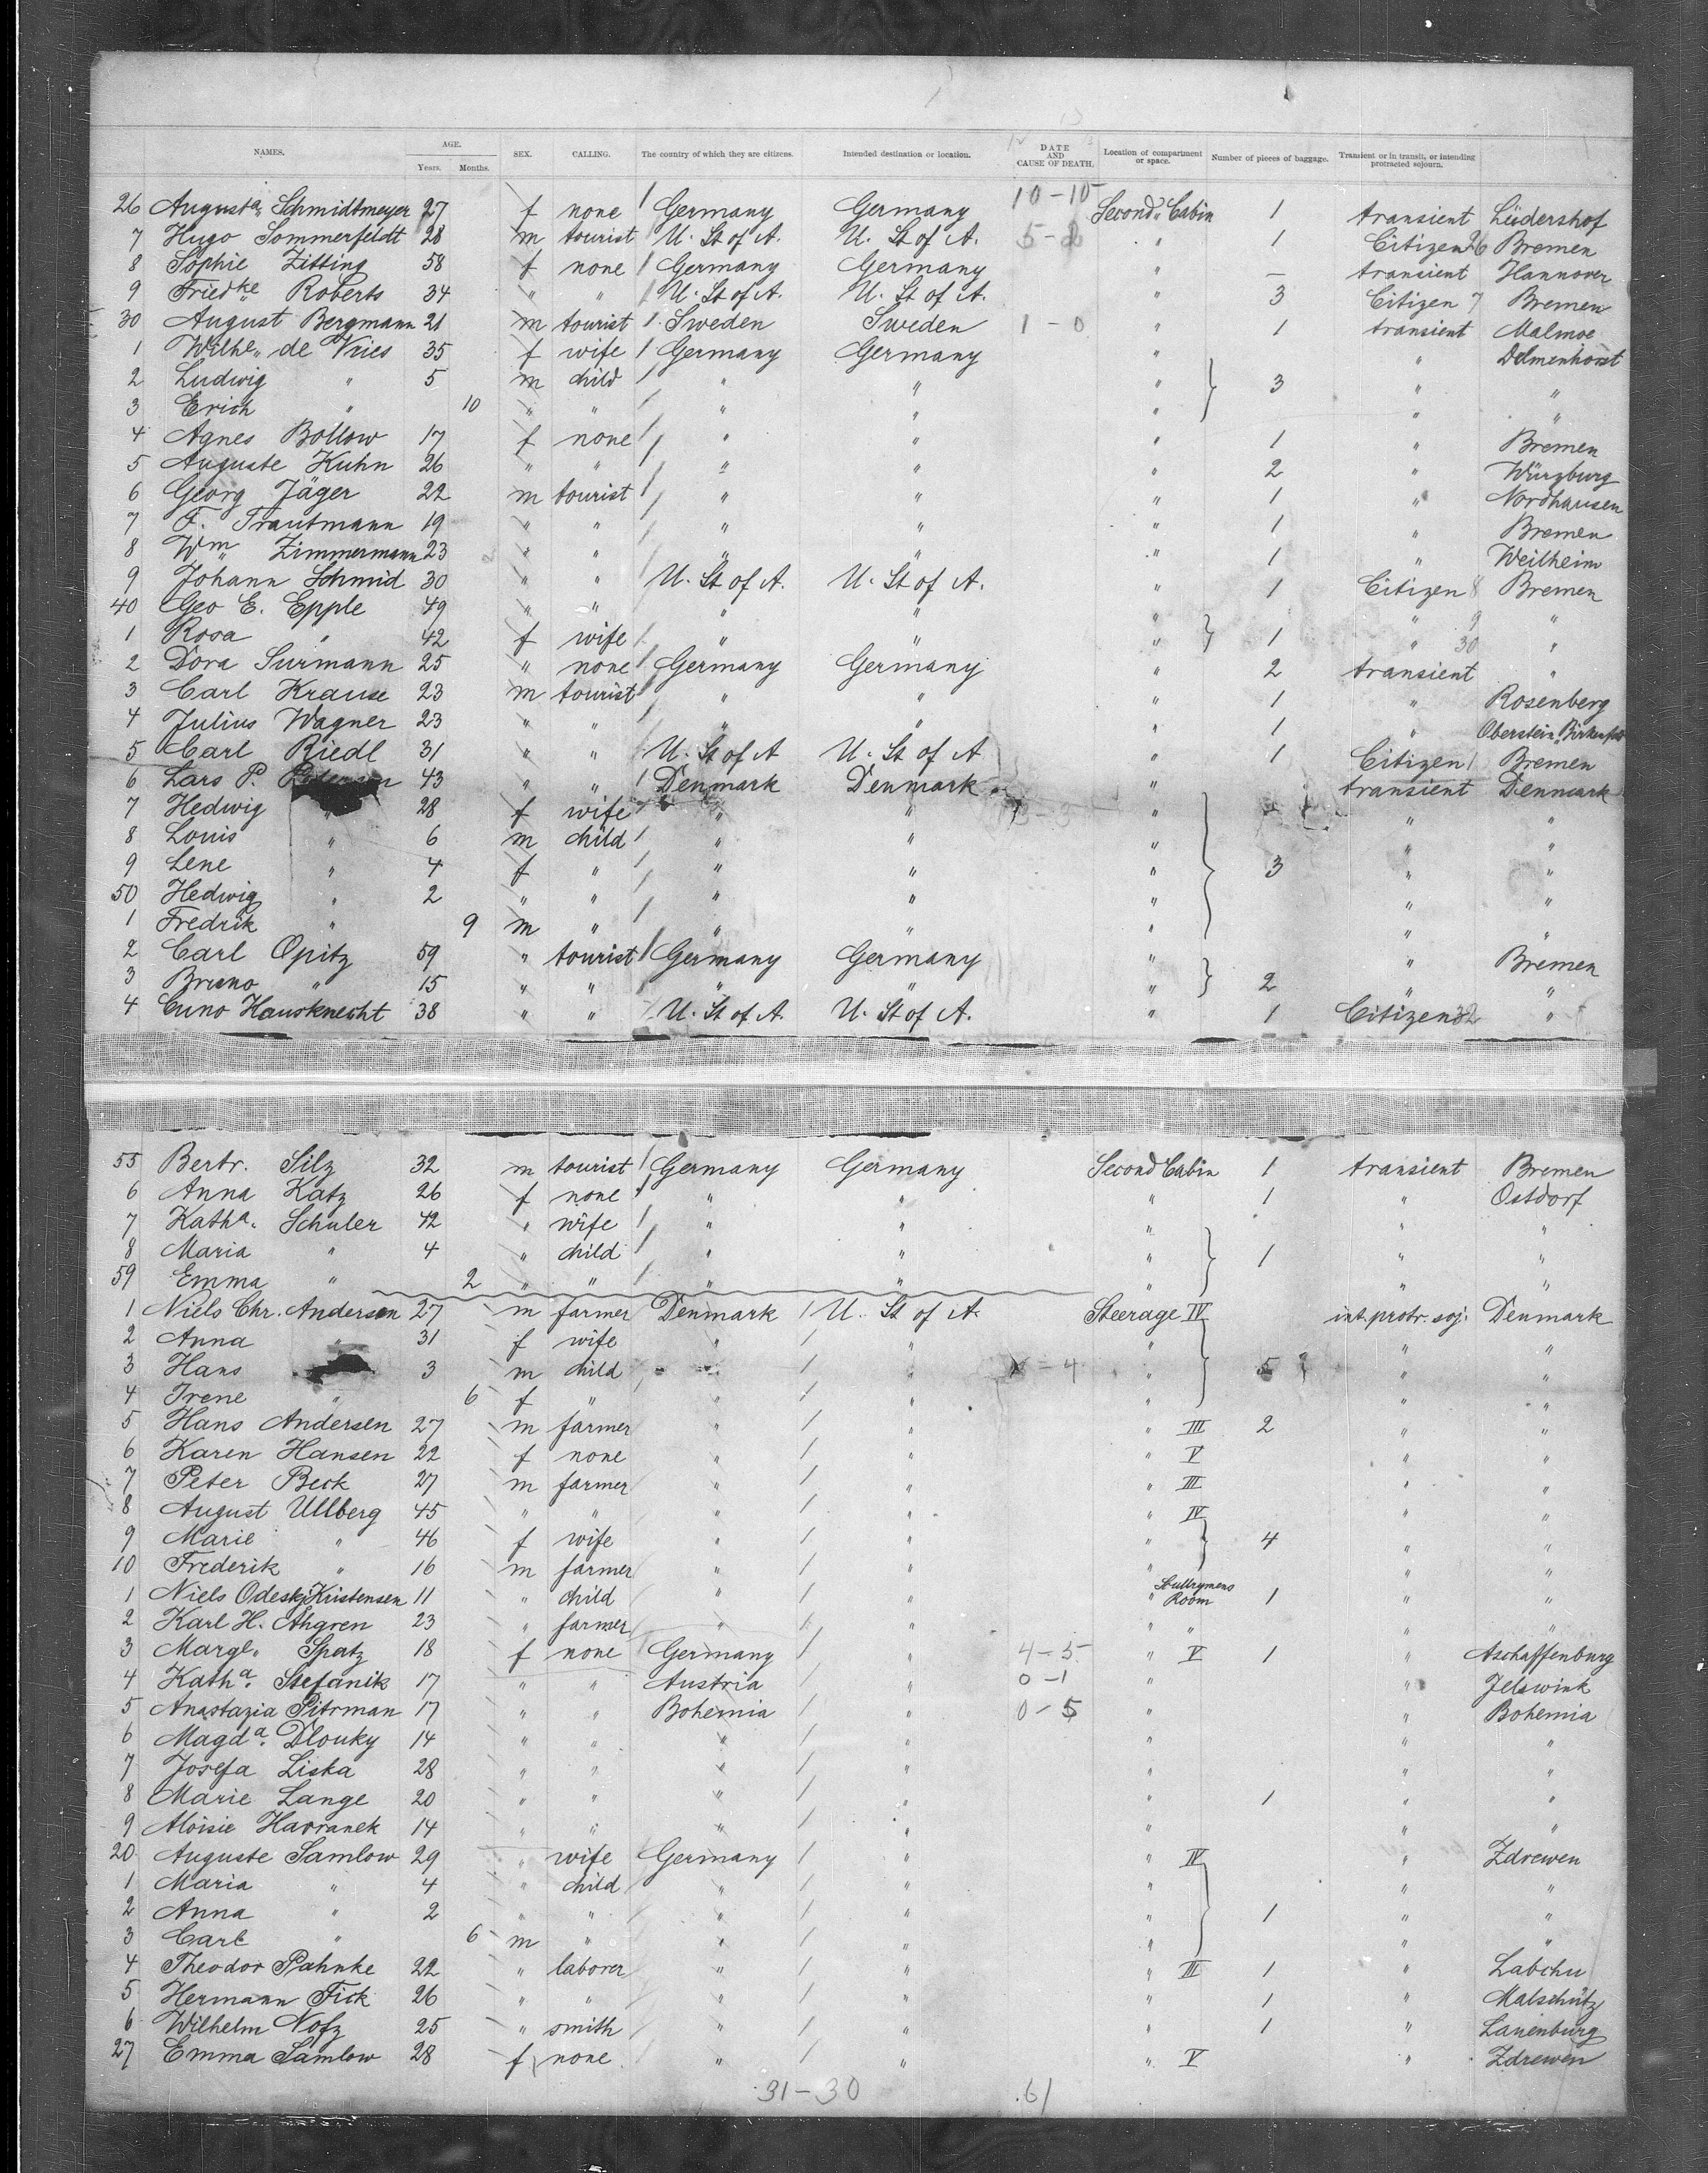 NAMES. AGE. Years. Months. SEX. CALLING. The country of which they are citizens. Intended destination or location. DATE AND CAUSE OF DEATH. Location of compartment or space. Number of pieces of baggage. Transient or in transit, or intending protracted sojourn.
10-15
26 Augusta. Schmidtmeyer 27 f none / Germany Germany Second Cabin 1 transient Lüdershof
7 Hugo Sommerfeldt 28 m tourist U. St of A. U. St of A. 5- " 1 Citizen 26 Bremen
8 Sophie Zitting 58 f none / Germany Germany " — transient Hannover
9 Friedke Roberts 34 " " / U. St of A. U. St of A. " 3 Citizen 7 Bremen
30 August Bergmann 21 m tourist / Sweden Sweden 1-0 " 1 transient Malmoe
1 Wilhe. de Vries 35 f wife / Germany Germany " " Delmenhorst
2 Ludwig " 5 m child / " " " 3 " "
3 Erich " 10 " " / " " " " "
4 Agnes Bollow 17 f none / " " " 1 " Bremen
5 Auguste Kuhn 26 " " / " " " 2 " Würzburg
6 Georg Jäger 22 m tourist / " " " 1 " Nordhausen
7 F. Trautmann 19 " " / " " " 1 " Bremen
8 Wm Zimmermann 23 " " / " " " 1 " Weilheim
9 Johann Schmid 30 " " / U. St of A. U. St of A. " 1 Citizen 8 Bremen
40 Geo E. Epple 49 " " / " " " " 9 "
1 Rosa " 42 f wife / " " " 1 " 30 "
2 Dora Surmann 25 " none / Germany Germany " 2 transient "
3 Carl Krause 23 m tourist / " " " 1 " Rosenberg
4 Julius Wagner 23 " " / " " " 1 " Oberstein
5 Carl Riedl 31 " " / U. St of A U. St of A " 1 Citizen 1 Bremen
6 Lars P. 43 " " / Denmark Denmark " transient Denmark
7 Hedwig " 28 f wife / " " 3-3 " " "
8 Louis " 6 m child / " " " " "
9 Lene " 4 f " / " " " 3 " "
50 Hedwig " 2 " " / " " " " "
1 Fredrik " 9 m " / " " " " "
2 Carl Opitz 59 " tourist / Germany Germany " " Bremen
3 Bruno " 15 " " / " " " 2 " "
4 Cuno Hausknecht 38 " " / U. St of A. U. St of A. " 1 Citizen 32 "
55 Bertr. Silz 32 m tourist / Germany Germany Second Cabin 1 transient Bremen
6 Anna Katz 26 f none / " " " 1 " Ostdorf
7 Katha. Schuler 42 " wife / " " " " "
8 Maria " 4 " child / " " " 1 " "
59 Emma " 2 " " / " " " " "
1 Niels Chr. Andersen 27 m farmer Denmark / U. St of A. Steerage IV int. protr. soj. Denmark
2 Anna " 31 f wife " / " " " "
3 Hans 3 m child " / " -4 " 5 " "
4 Irene " 6 f " " / " " " "
5 Hans Andersen 27 m farmer " / " " III 2 " "
6 Karen Hansen 22 f none " / " " V " "
7 Peter Beck 27 m farmer " / " " III " "
8 August Ullberg 45 " " " / " " IV " "
9 Marie " 46 f wife " / " " 4 " "
10 Frederik " 16 m farmer " / " " " "
1 Niels Odeskj Kristensen 11 " child " / " " Room 1 " "
2 Karl H. Ahgren 23 " farmer " / " " " " "
3 Margl. Spatz 18 f none Germany / " 4-5 " V 1 " Aschaffenburg
4 Katha. Stefanik 17 " " Austria / " 0-1 " " Jelswink
5 Anastazia Pitrman 17 " " Bohemia / " 0-5 " " Bohemia
6 Magda. Dlouky 14 " " " / " " " "
7 Josefa Liska 28 " " " / " " " "
8 Marie Lange 20 " " " / " " 1 " "
9 Aloisie Havranek 14 " " " / " " " "
20 Auguste Samlow 29 " wife Germany / " " IV " Zdrewen
1 Maria " 4 " child " / " " " "
2 Anna " 2 " " " / " " 1 " "
3 Carl " 6 m " " / " " " "
4 Theodor Pahnke 22 " laborer " / " " III 1 " Labehu
5 Hermann Fick 26 " " " / " " 1 " Malschütz
6 Wilhelm Nofz 25 " smith " / " " 1 " Lauenburg
27 Emma Samlow 28 f none " / " " V " Zdrewen
31-30 61